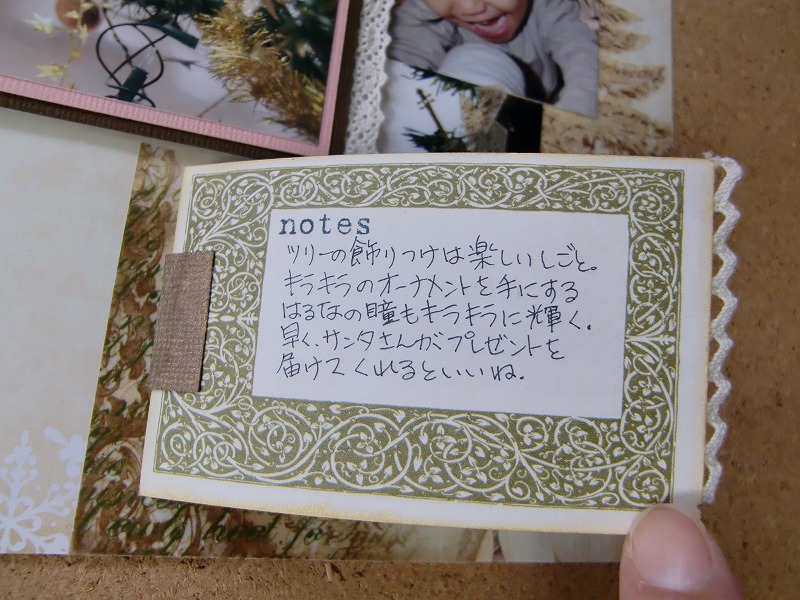 notes
ツリーの飾りつけは楽しいしごと。
キラキラのオーナメントを手にする
はるなの瞳もキラキラに輝く.
早く、サンタさんがプレゼントを
届けてくれるといいね.